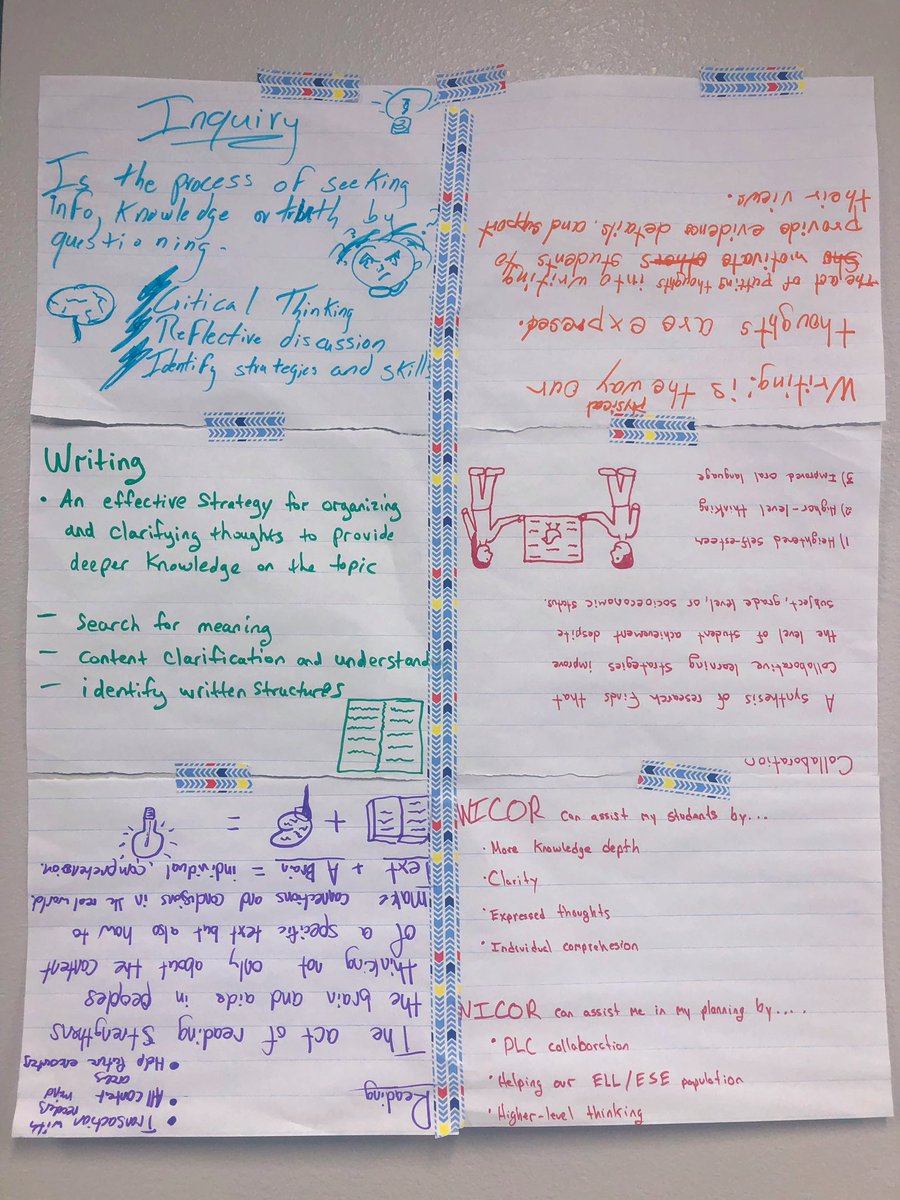 Inquiry
Is the process of seeking
info, knowledge or truth by
questioning.
Critical Thinking
Reflective discussion
Identify strategies and skills
Writing: is the physical way our
thoughts are expresed.
The act of putting thoughts into writing
motivate students to
provide evidence details, and support
their views.
Writing
• An effective strategy for organizing
and clarifying thoughts to provide
deeper knowledge on the topic
- Search for meaning
- Content Clarification and understand
- identify written structures
Collaboration
A synthesis of research finds that
collaborative learning strategies improve
the level of student achievement despite
subject, grade level, or socioeconomic status.
1) Heightened self-esteem
2) Higher-level thinking
3) Improved oral language
Reading
• Transaction with
readers mind
• All content
areas
• Help future encounters
The act of reading strengthens
the brain and aide in peoples
thinking not only about the content
of a specific text but also how to
make connections and conclusions in the real world.
Text + A Brain = individual comprehension.
+ =
WICOR can assist my students by...
• More Knowledge depth
• Clarity
• Expressed thoughts
• Individual comprehesion
WICOR can assist me in my planning by....
• PLC collaboration
• Helping our ELL/ESE population
• Higher-level thinking